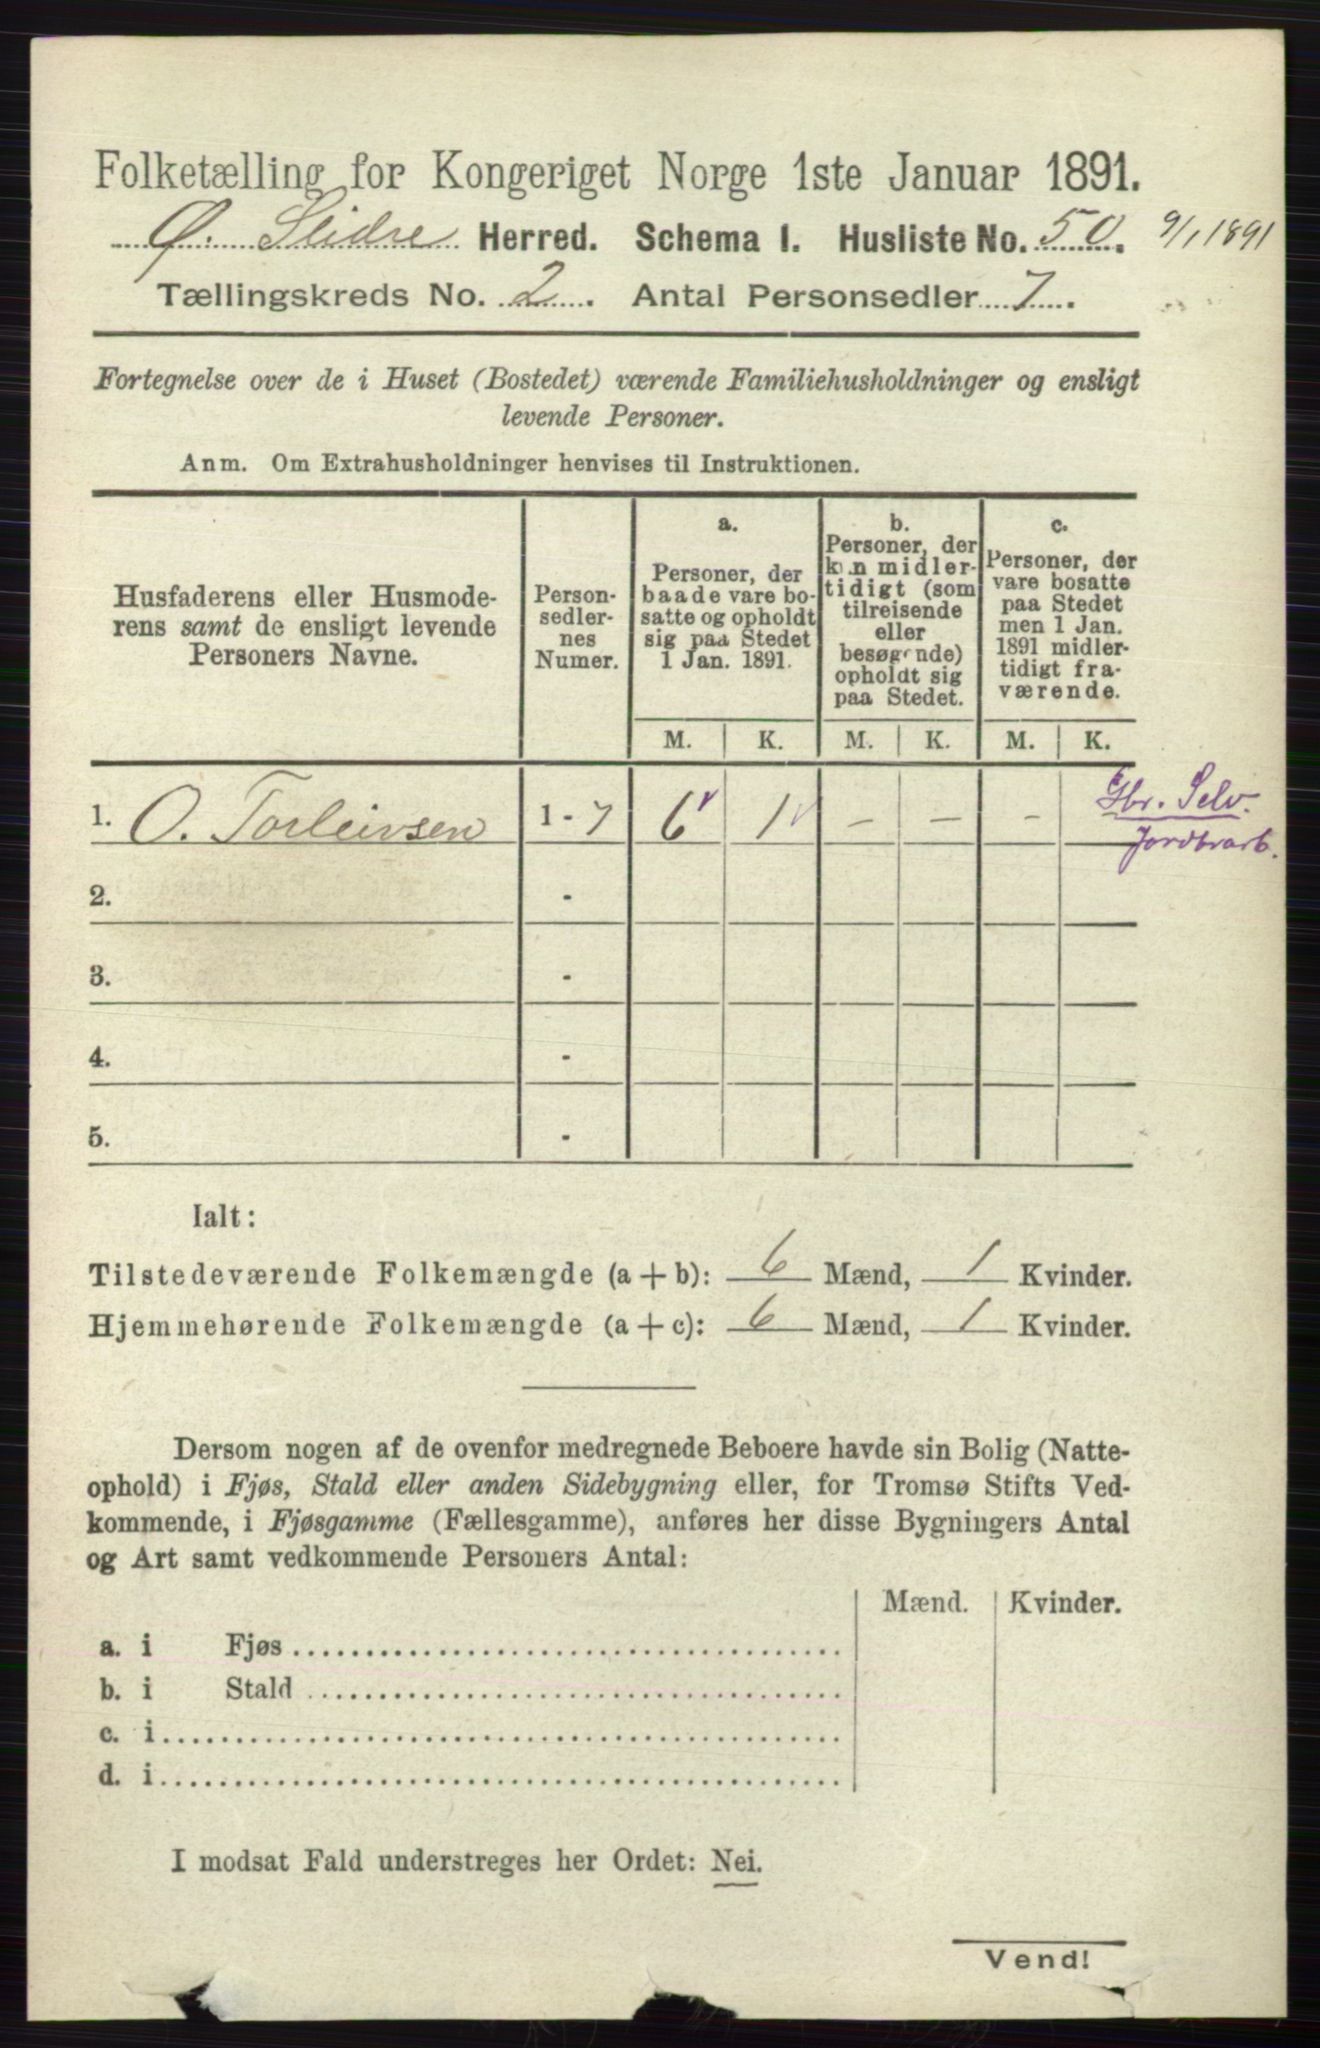 Folketælling for Kongeriget Norge 1ste Januar 1891.
Ø. Slidre Herred. Schema I. Husliste No. 50. 9/1 1891
Tællingskreds No. 2. Antal Personsedler 7.
Fortegnelse over de i Huset (Bostedet) værende Familiehusholdninger og ensligt
levende Personer.
Anm. Om Extrahusholdninger henvises til Instruktionen.
Husfaderens eller Husmode-
rens samt de ensligt levende
Personers Navne.
Person-
sedler-
nes
Numer.
a.
Personer, der
baade vare bo-
satte og opholdt
sig paa Stedet
1 Jan. 1891.
b.
Personer, der
kun midler-
tidigt (som
tilreisende
eller
besøgende)
opholdt sig
paa Stedet.
c.
Personer, der
vare bosatte
paa Stedet
men 1 Jan.
1891 midler-
tidigt fra-
værende.
M. K. M. K. M. K.
1. O. Torleivsen 1 - 7 6 1 - - - Gbr. Selv.
Jordbrarb.
2. -
3. -
4. -
5. -
Ialt:
Tilstedeværende Folkemængde (a + b): 6 Mænd, 1 Kvinder.
Hjemmehørende Folkemængde (a + c): 6 Mænd, 1 Kvinder.
Dersom nogen af de ovenfor medregnede Beboere havde sin Bolig (Natte-
ophold) i Fjøs, Stald eller anden Sidebygning eller, for Tromsø Stifts Ved-
kommende, i Fjøsgamme (Fællesgamme), anføres her disse Bygningers Antal
og Art samt vedkommende Personers Antal:
Mænd. Kvinder.
a. i Fjøs
b. i Stald
c. i
d. i
I modsat Fald understreges her Ordet: Nei.
Vend!